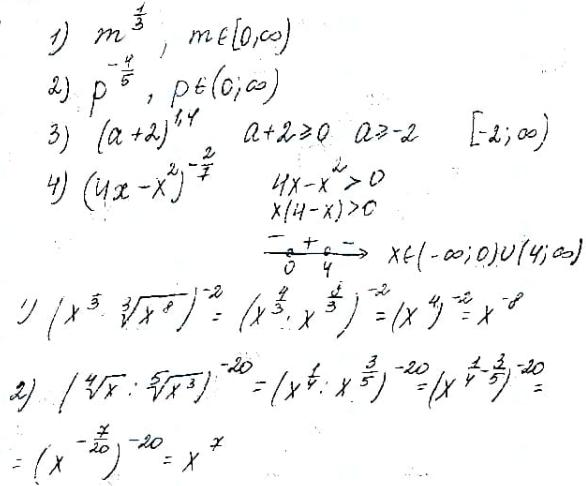 1) m^(1/3), m∈[0,∞)
2) p^(-4/5), p∈(0;∞)
3) (a+2)^(1,4) a+2≥0 a≥-2 [-2;∞)
4) (4x-x²)^(-2/7) 4x-x²>0
x(4-x)>0
- + -
0 4 x∈(-∞;0)∪(4;∞)
1) (x · ∛(x⁸))^(-2) = (x^(4/3) · x^(8/3))^(-2) = (x⁴)^(-2) = x^(-8)
2) (⁴√x : ⁵√(x³))^(-20) = (x^(1/4) : x^(3/5))^(-20) = (x^(1/4-3/5))^(-20) =
= (x^(-7/20))^(-20) = x⁷